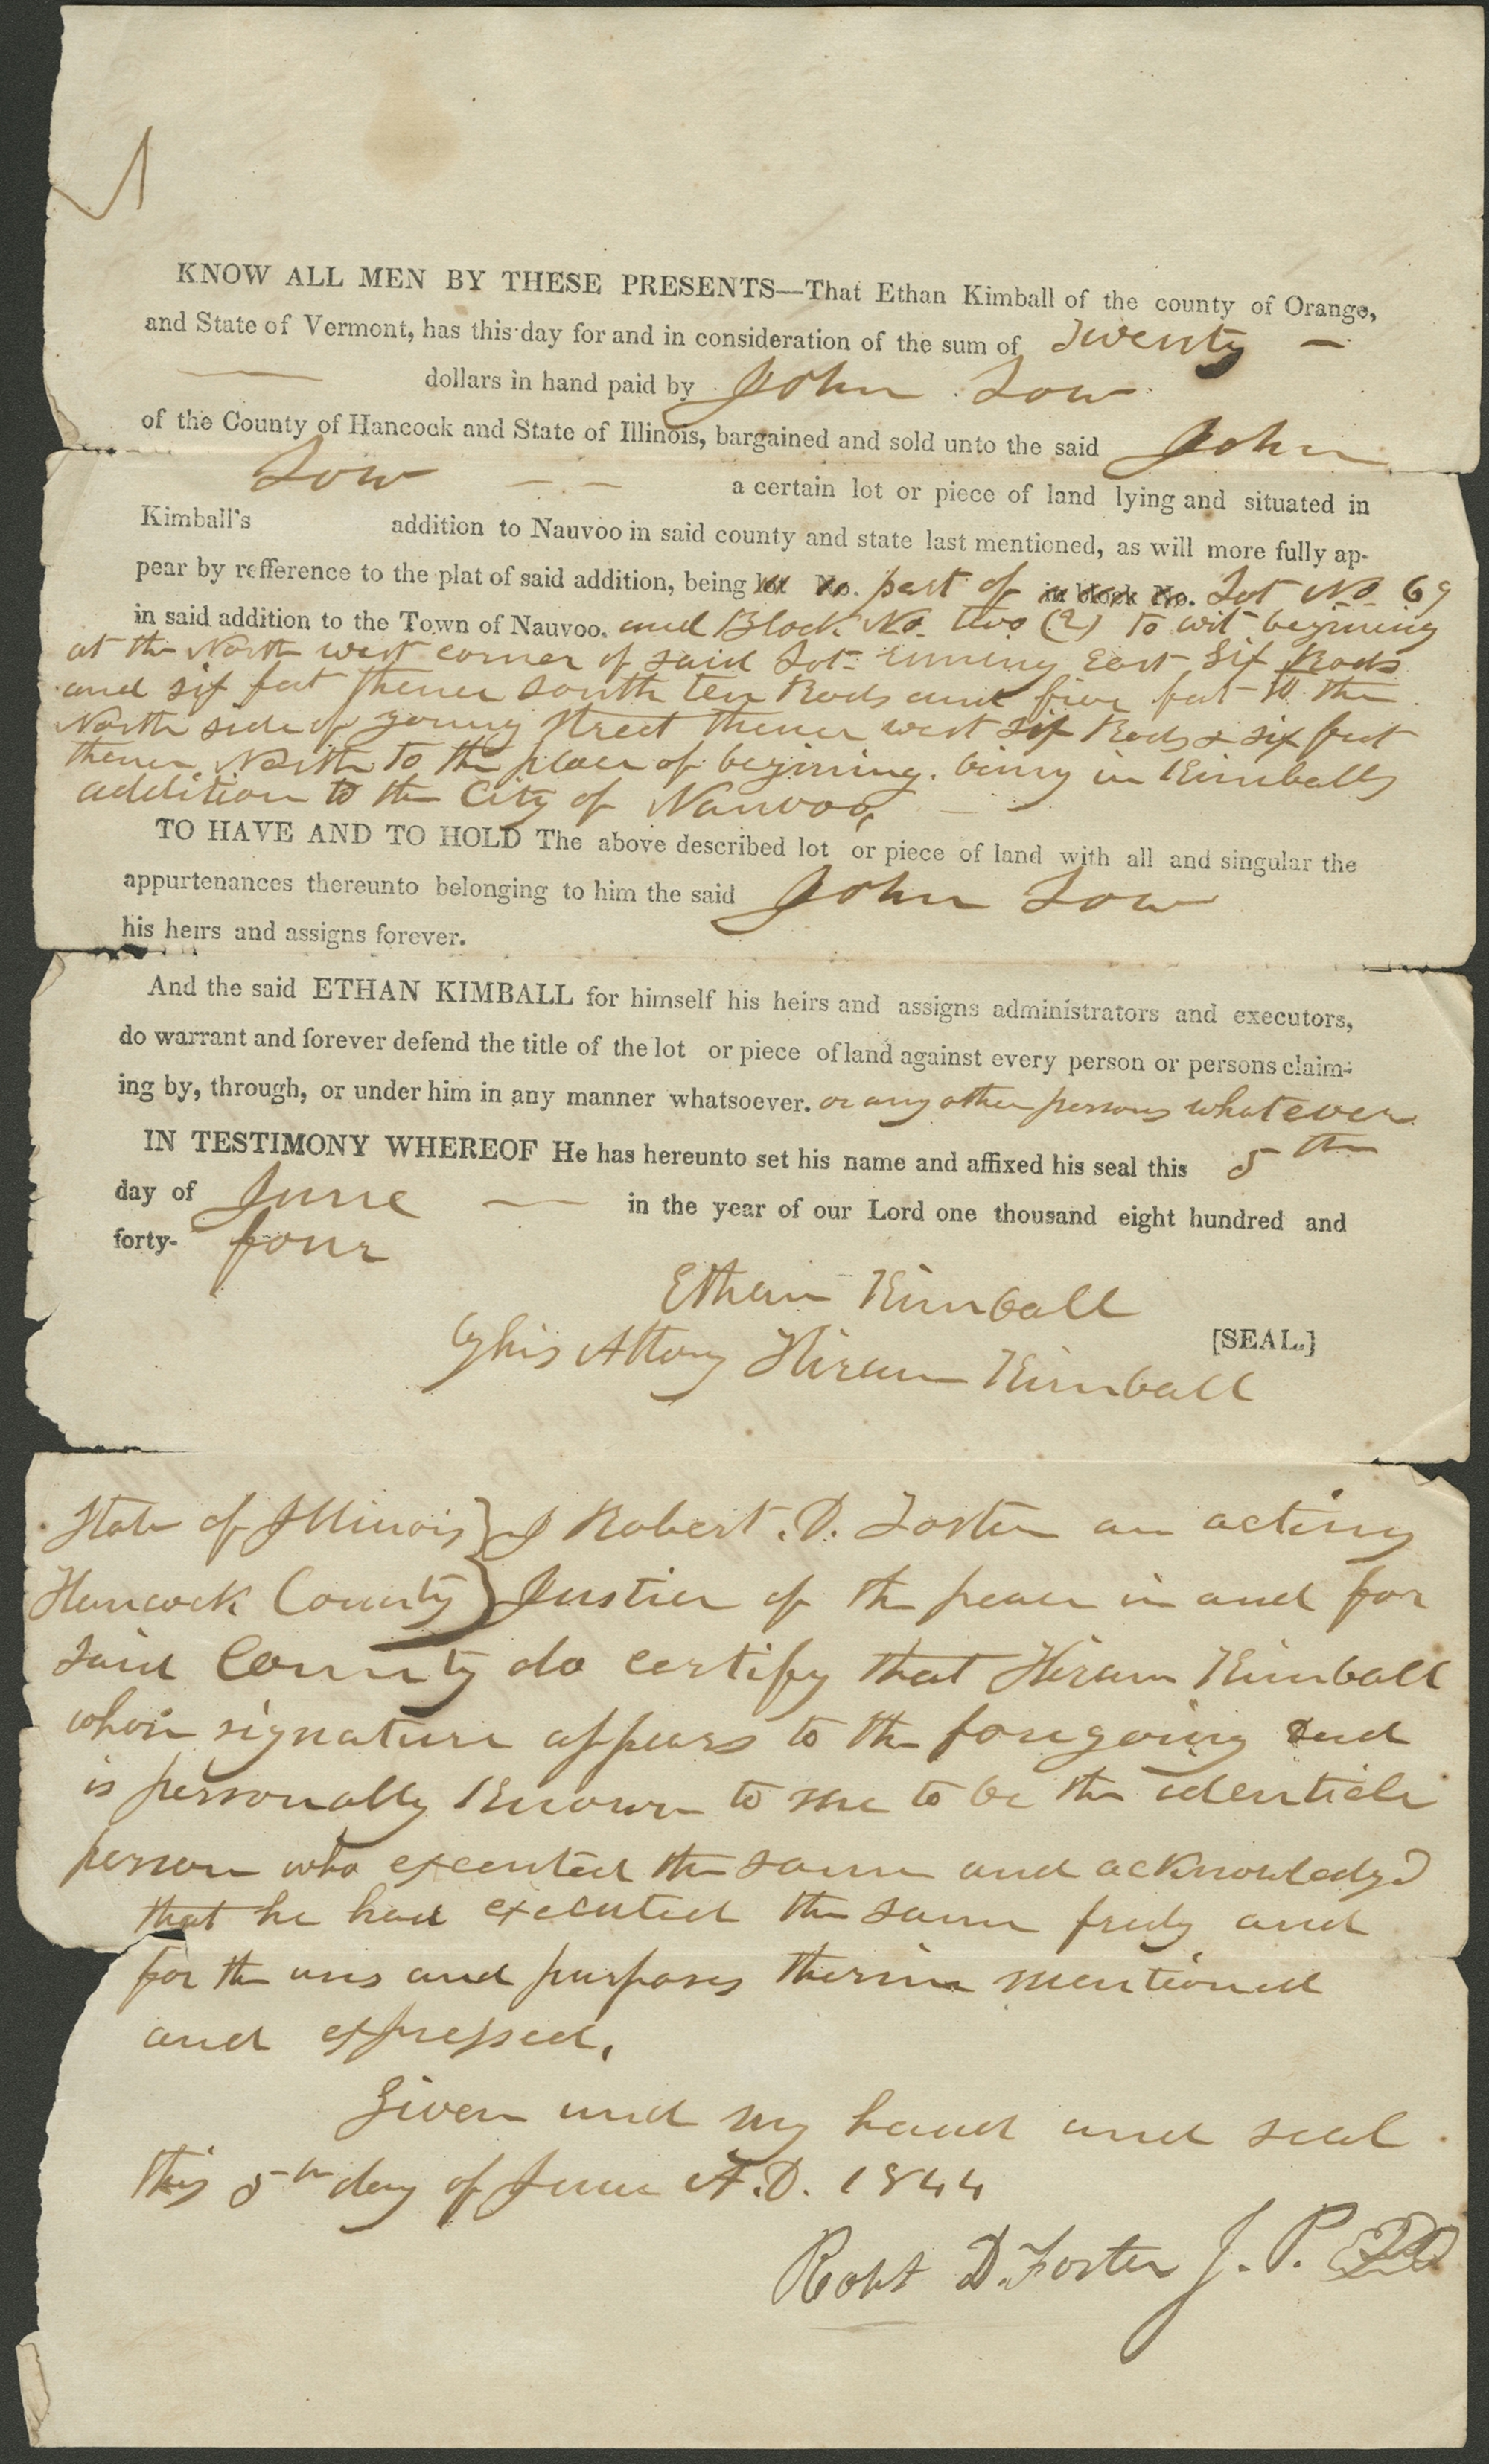 KNOW ALL MEN BY THESE PRESENTS—That Ethan Kimball of the county of Orange,
and State of Vermont, has this day for and in consideration of the sum of Twenty —
— dollars in hand paid by John Low
of the County of Hancock and State of Illinois, bargained and sold unto the said John
Low — — a certain lot or piece of land lying and situated in
Kimball's addition to Nauvoo in said county and state last mentioned, as will more fully ap-
pear by refference to the plat of said addition, being lot No. part of in block No. Lot No. 69
in said addition to the Town of Nauvoo. and Block No. two (2) to wit begining
at the North west corner of said Lot runing East Six Rods
and six feet thence South ten Rods and five feet to the
North side of young street thence west six Rods & six feet
thence North to the place of begining. being in Kimballs
addition to the City of Nauvoo,
TO HAVE AND TO HOLD The above described lot or piece of land with all and singular the
appurtenances thereunto belonging to him the said John Low
his heirs and assigns forever.
And the said ETHAN KIMBALL for himself his heirs and assigns administrators and executors,
do warrant and forever defend the title of the lot or piece of land against every person or persons claim-
ing by, through, or under him in any manner whatsoever. or any other persons whatever
IN TESTIMONY WHEREOF He has hereunto set his name and affixed his seal this 5th
day of June — in the year of our Lord one thousand eight hundred and
forty- four
Ethan Kimball
by his Attorny Hiram Kimball [SEAL.]
State of Illinois } I Robert. D. Foster an acting
Hancock County } Justice of the peace in and for
said County do certify that Hiram Kimball
whose signature appears to the foregoing Deed
is personally known to me to be the identicle
person who executed the same and acknowledgd
that he had executed the same freely and
for the uses and purposes therein mentioned
and expressed.
Given und my hand and seal
this 5th day of June A.D. 1844
Robt D. Foster J. P.